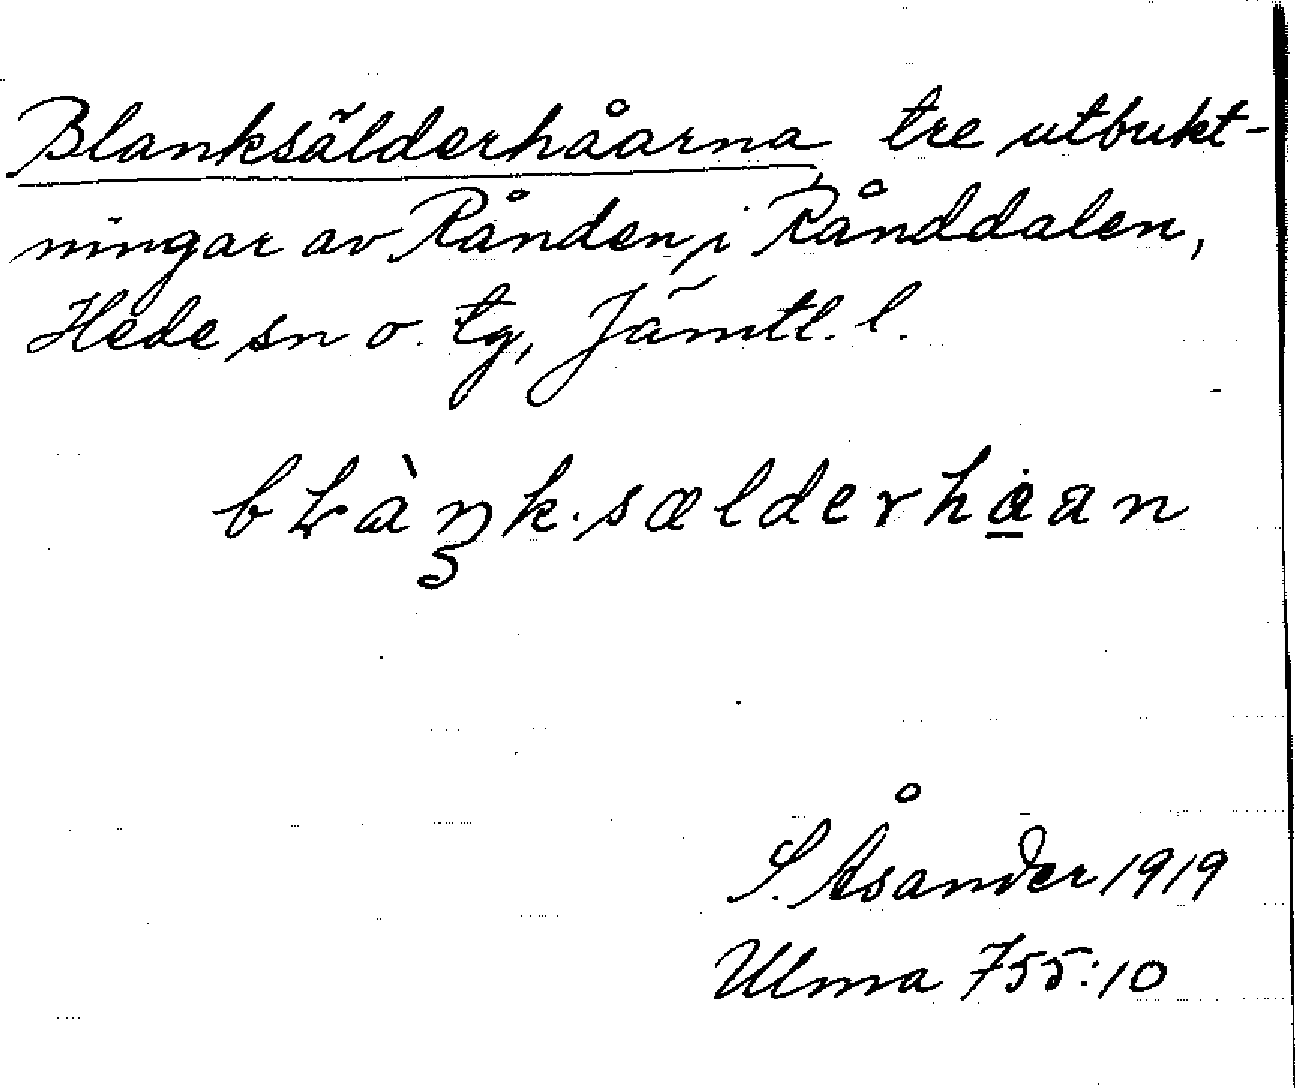 Blanksälderhåarna, tre utbukt-
ningar av Rånden i Rånddalen,
Hede sn o. tg, Jämtl. l.
bʟàŋk.sælderhåan
S. Åsander 1919
Ulma 755:10